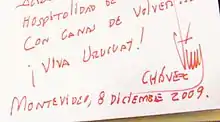 Hospitalidad de
Con ganas de volver...
¡Viva Uruguay!
Chávez
Montevideo, 8 diciembre 2009.